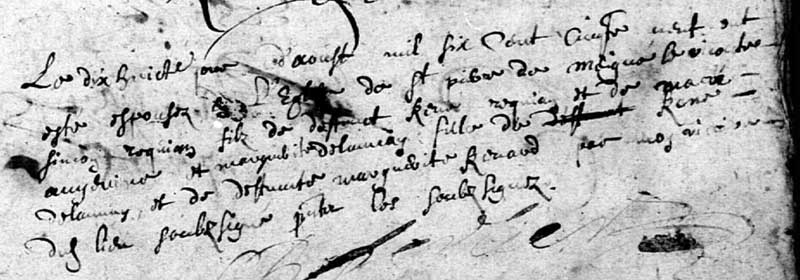 Le dix huictie jour d'aoust mil six cent cinq ont
este espousez en L'Eglise de St pierre de maigné le viconte
Simon requiau filz de deffunct René requiau et de marie
et marguerite delaunay fille de deffunct René
delaunay et de deffuncte marguerite Renard par moy vicaire
dud lieu soubzsigne pntz les soubzsignez.